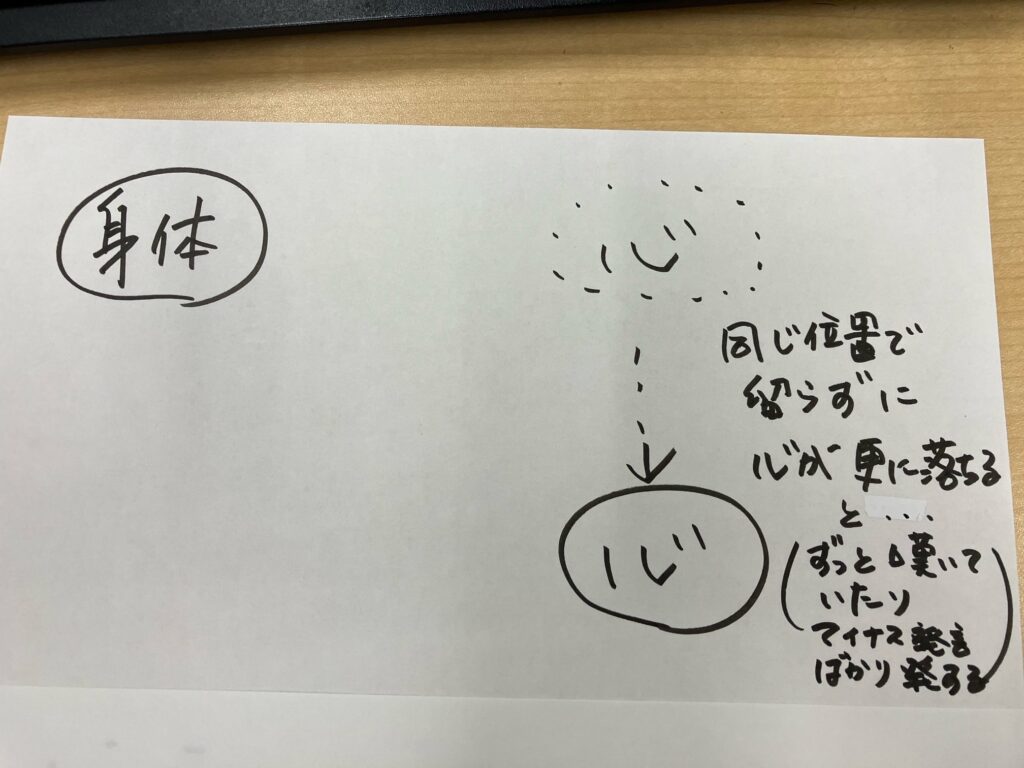 身体
心
同じ位置で
留らずに
心が更に落ちる
と...
心
(ずっと嘆いて
いたり
マイナス発言
ばかり発する)